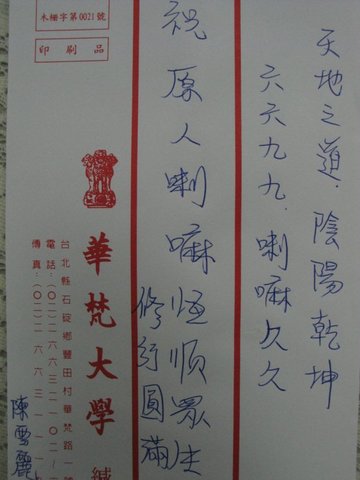 天地之道.陰陽乾坤
六六九九.喇嘛久久
祝原人喇嘛恆順眾生
修行圓滿
木柵字第0021號
印刷品
華梵大學 緘
台北縣石碇鄉豐田村華梵路一號
電話:(○二)二六六三二一○二
傳真:(○二)二六六三一一
陳雪麗